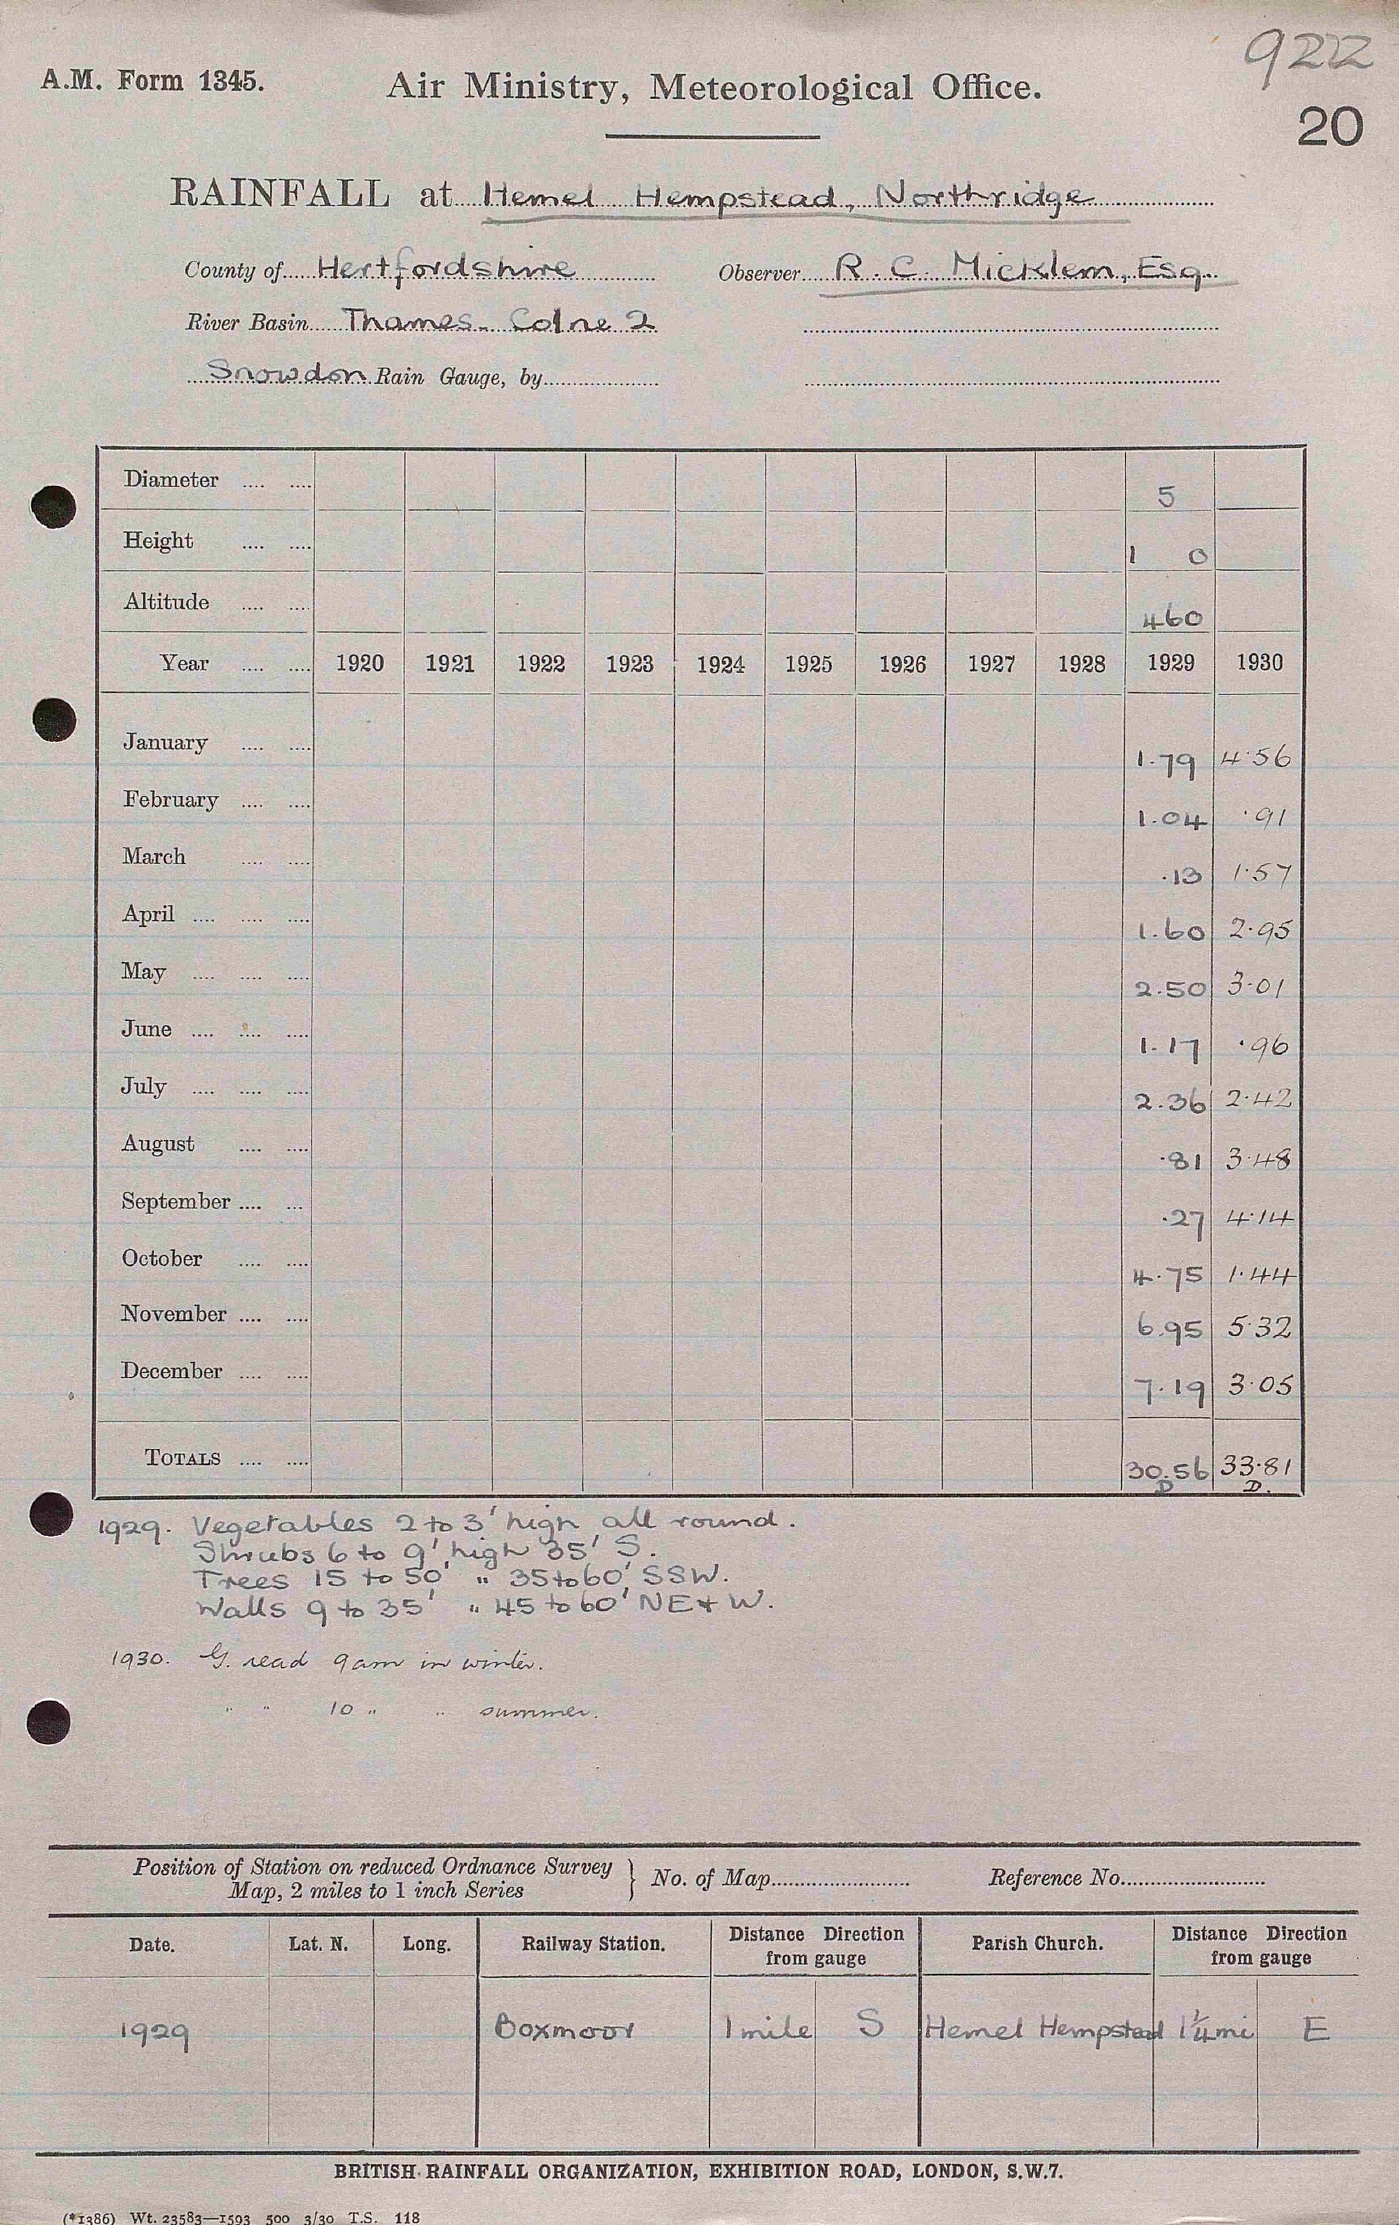 922
A.M. Form 1345. Air Ministry, Meteorological Office.
20
RAINFALL at Hemel Hempstead, Northridge
County of Hertfordshire Observer R. C. Micklem, Esq.
River Basin Thames - Colne 2
Snowdon Rain Gauge, by
Diameter .... .... 5
Height .... .... 1 0
Altitude .... .... 460
Year .... .... 1920 1921 1922 1923 1924 1925 1926 1927 1928 1929 1930
January .... .... 1.79 4.56
February .... .... 1.04 .91
March .... .... .13 1.57
April .... .... .... 1.60 2.95
May .... .... .... 2.50 3.01
June .... .... .... 1.17 .96
July .... .... .... 2.36 2.42
August .... .... .81 3.48
September .... ... .27 4.14
October .... .... 4.75 1.44
November .... .... 6.95 5.32
December .... .... 7.19 3.05
TOTALS .... .... 30.56 33.81
D D.
1929. Vegetables 2 to 3' high all round.
Shrubs 6 to 9' high 35' S.
Trees 15 to 50' " 35 to 60' SSW.
Walls 9 to 35' " 45 to 60' NE & W.
1930. G. read 9am in winter.
" " 10 " " summer.
Position of Station on reduced Ordnance Survey
Map, 2 miles to 1 inch Series } No. of Map Reference No.
Date. Lat. N. Long. Railway Station. Distance Direction from gauge Parish Church. Distance Direction from gauge
1929 Boxmoor 1 mile S Hemel Hempstead 1¼ mi E
BRITISH RAINFALL ORGANIZATION, EXHIBITION ROAD, LONDON, S.W.7.
(*1386) Wt. 23583—1593 500 3/30 T.S. 118